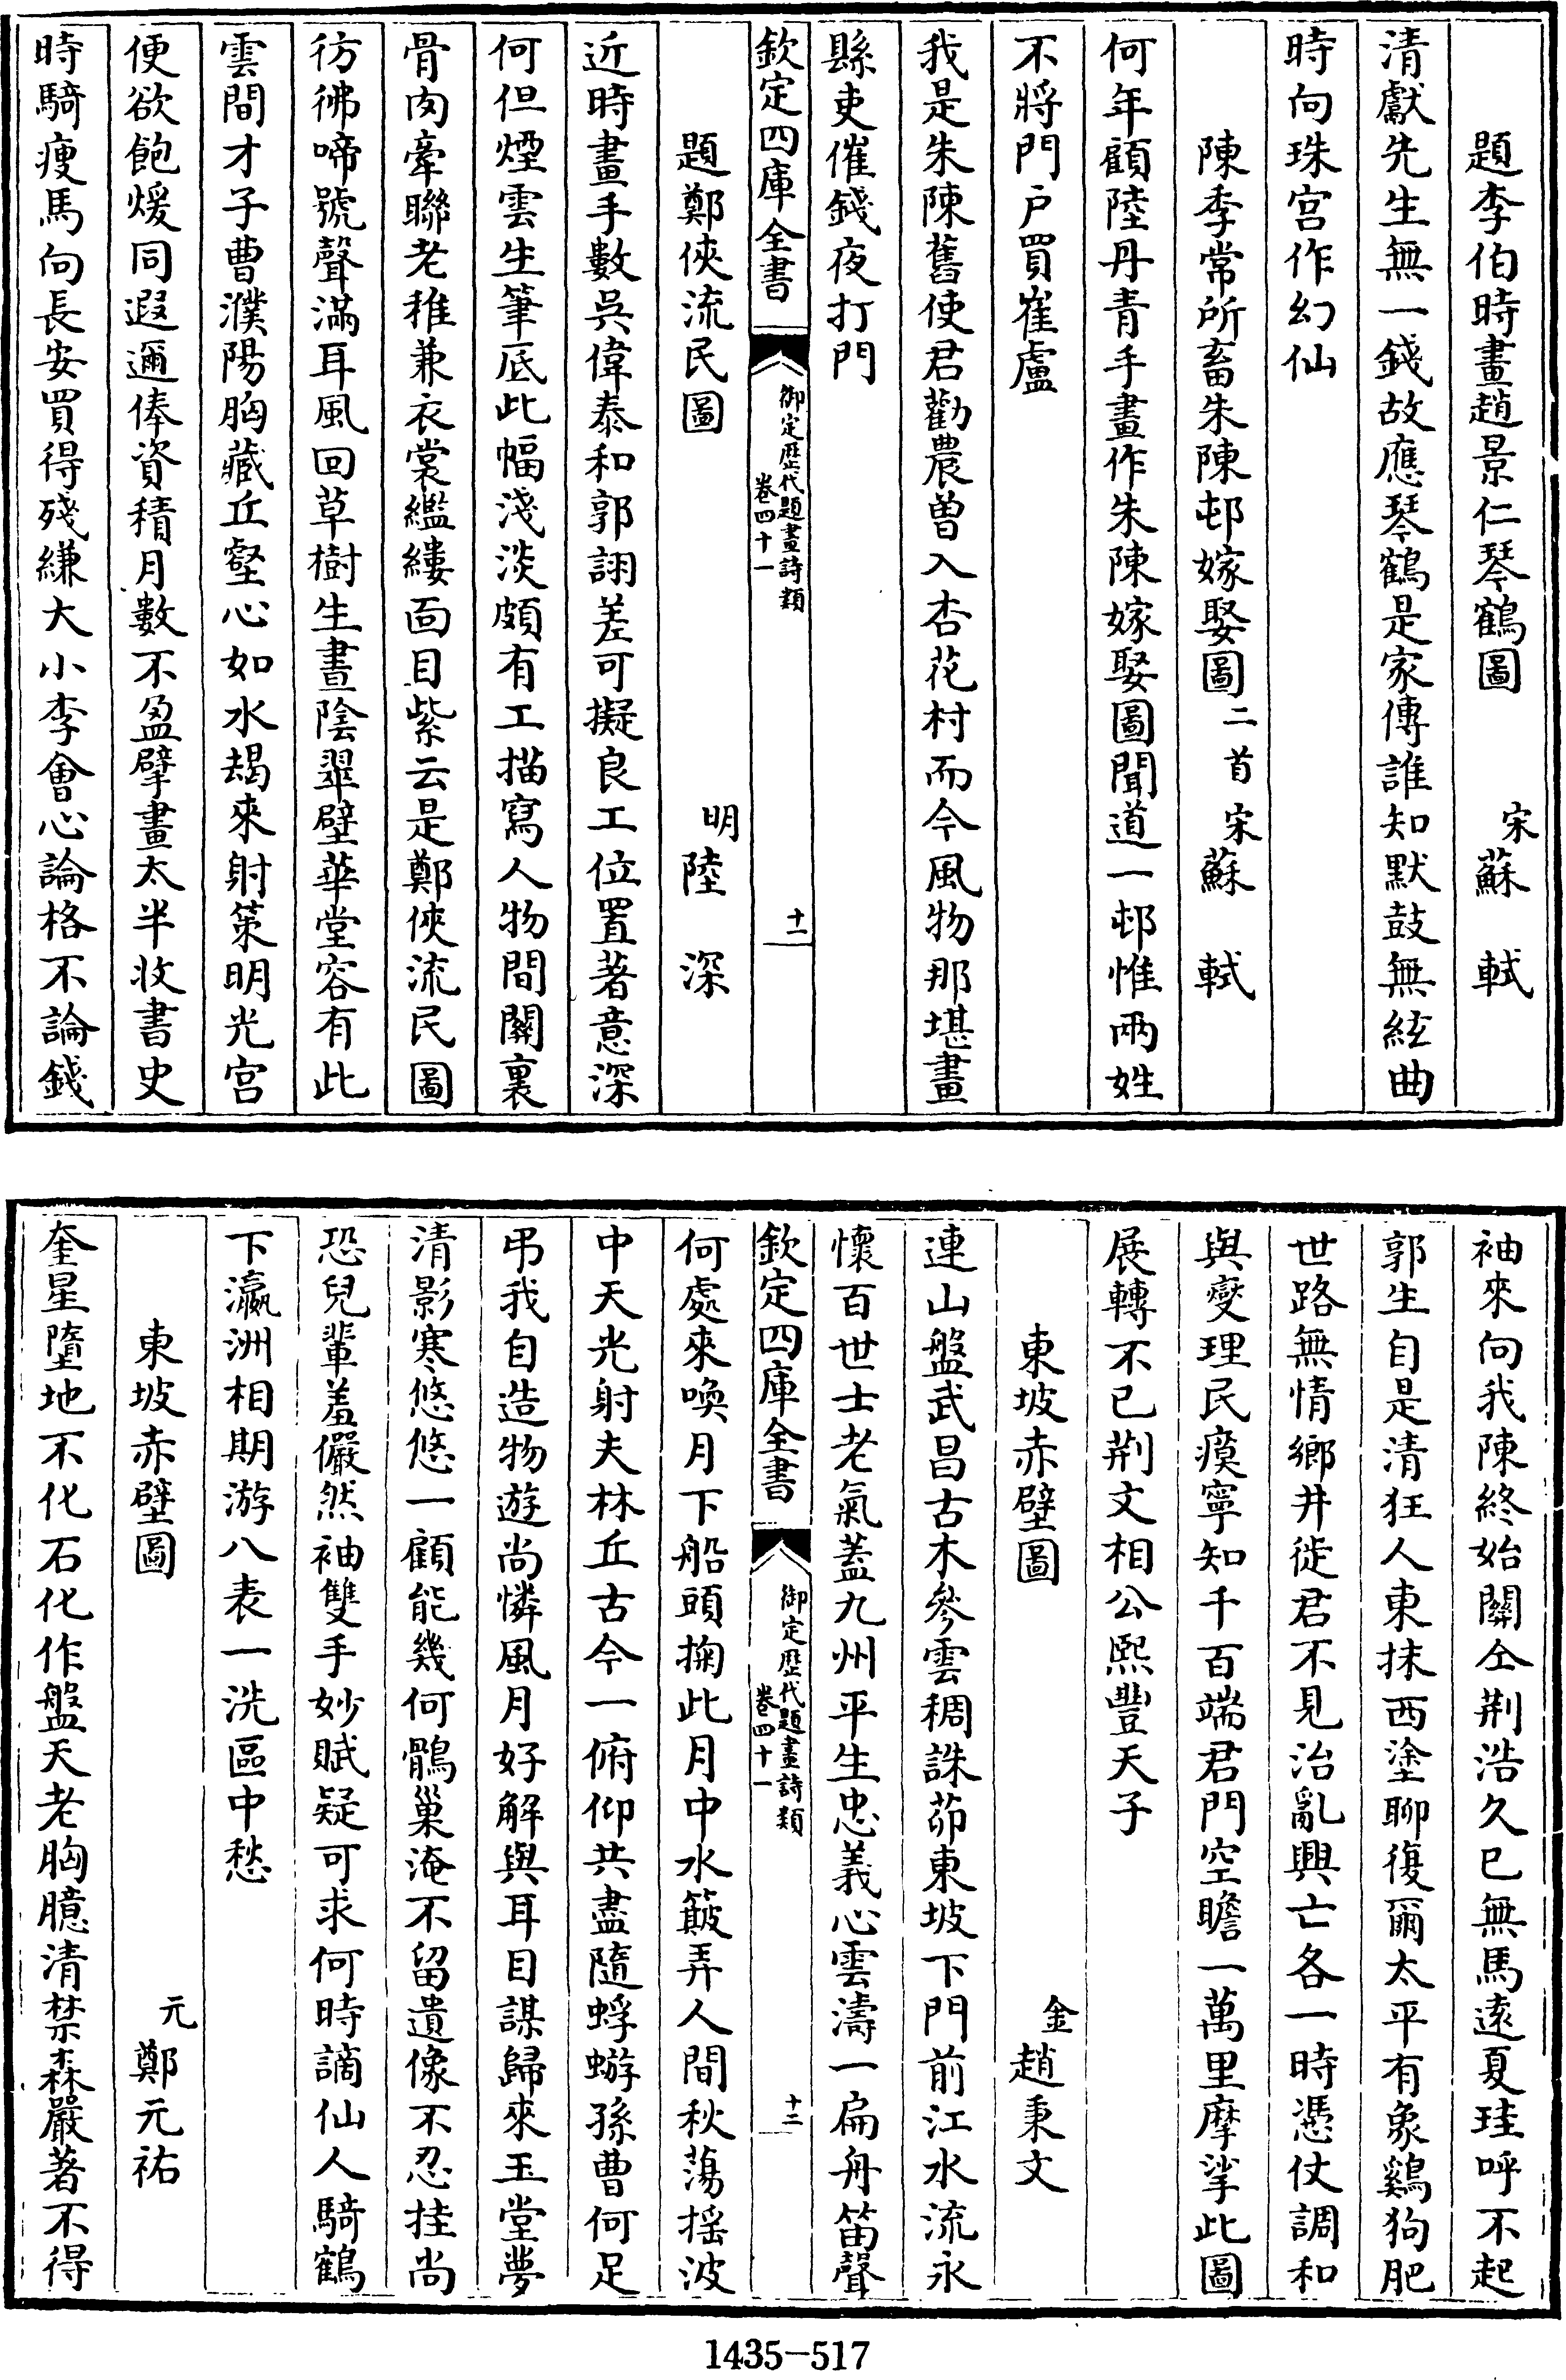 題李伯時畫趙景仁琴鶴圖 宋蘇軾
清獻先生無一錢故應琴鶴是家傳誰知默鼓無絃曲
時向珠宫作幻仙
陳季常所畜朱陳邨嫁娶圖二首 宋蘇軾
何年顧陸丹青手畫作朱陳嫁娶圖聞道一邨惟兩姓
不將門户買崔盧
我是朱陳舊使君勸農曾入杏花村而今風物那堪畫
縣吏催錢夜打門
欽定四庫全書 御定歴代題畫詩類 卷四十一 十一
題鄭俠流民圖 明陸深
近時畫手數吳偉泰和郭詡差可擬良工位置著意深
何但煙雲生筆底此幅淺淡頗有工描寫人物間關裏
骨肉牽聯老稚兼衣裳繿縷面目紫云是鄭俠流民圖
彷彿啼號聲滿耳風回草樹生晝陰翠壁華堂容有此
雲間才子曹濮陽胸藏丘壑心如水朅來射策明光宫
便欲飽煖同遐邇俸資積月數不盈擘畫太半收書史
時騎瘦馬向長安買得殘縑大小李會心論格不論錢
袖來向我陳終始關仝荆浩久已無馬逺夏珪呼不起
郭生自是清狂人東抹西塗聊復爾太平有象鷄狗肥
世路無情鄉井徙君不見治亂興亡各一時憑仗調和
與燮理民瘼寧知千百端君門空瞻一萬里摩挲此圖
展轉不已荆文相公熙豐天子
東坡赤壁圖 金趙秉文
連山盤武昌古木參雲稠誅茆東坡下門前江水流永
懷百世士老氣蓋九州平生忠義心雲濤一扁舟笛聲
欽定四庫全書 御定歴代題畫詩類 卷四十一 十二
何處來喚月下船頭掬此月中水簸弄人間秋蕩揺波
中天光射夫林丘古今一俯仰共盡隨蜉蝣孫曹何足
弔我自造物遊尚憐風月好解與耳目謀歸來玉堂夢
清影寒悠悠一顧能幾何鶻巢淹不留遺像不忍挂尚
恐兒輩羞儼然袖雙手妙賦疑可求何時謫仙人騎鶴
下瀛洲相期游八表一洗區中愁
東坡赤壁圖 元鄭元祐
奎星墮地不化石化作盤天老胸臆清禁森嚴著不得
1435-517